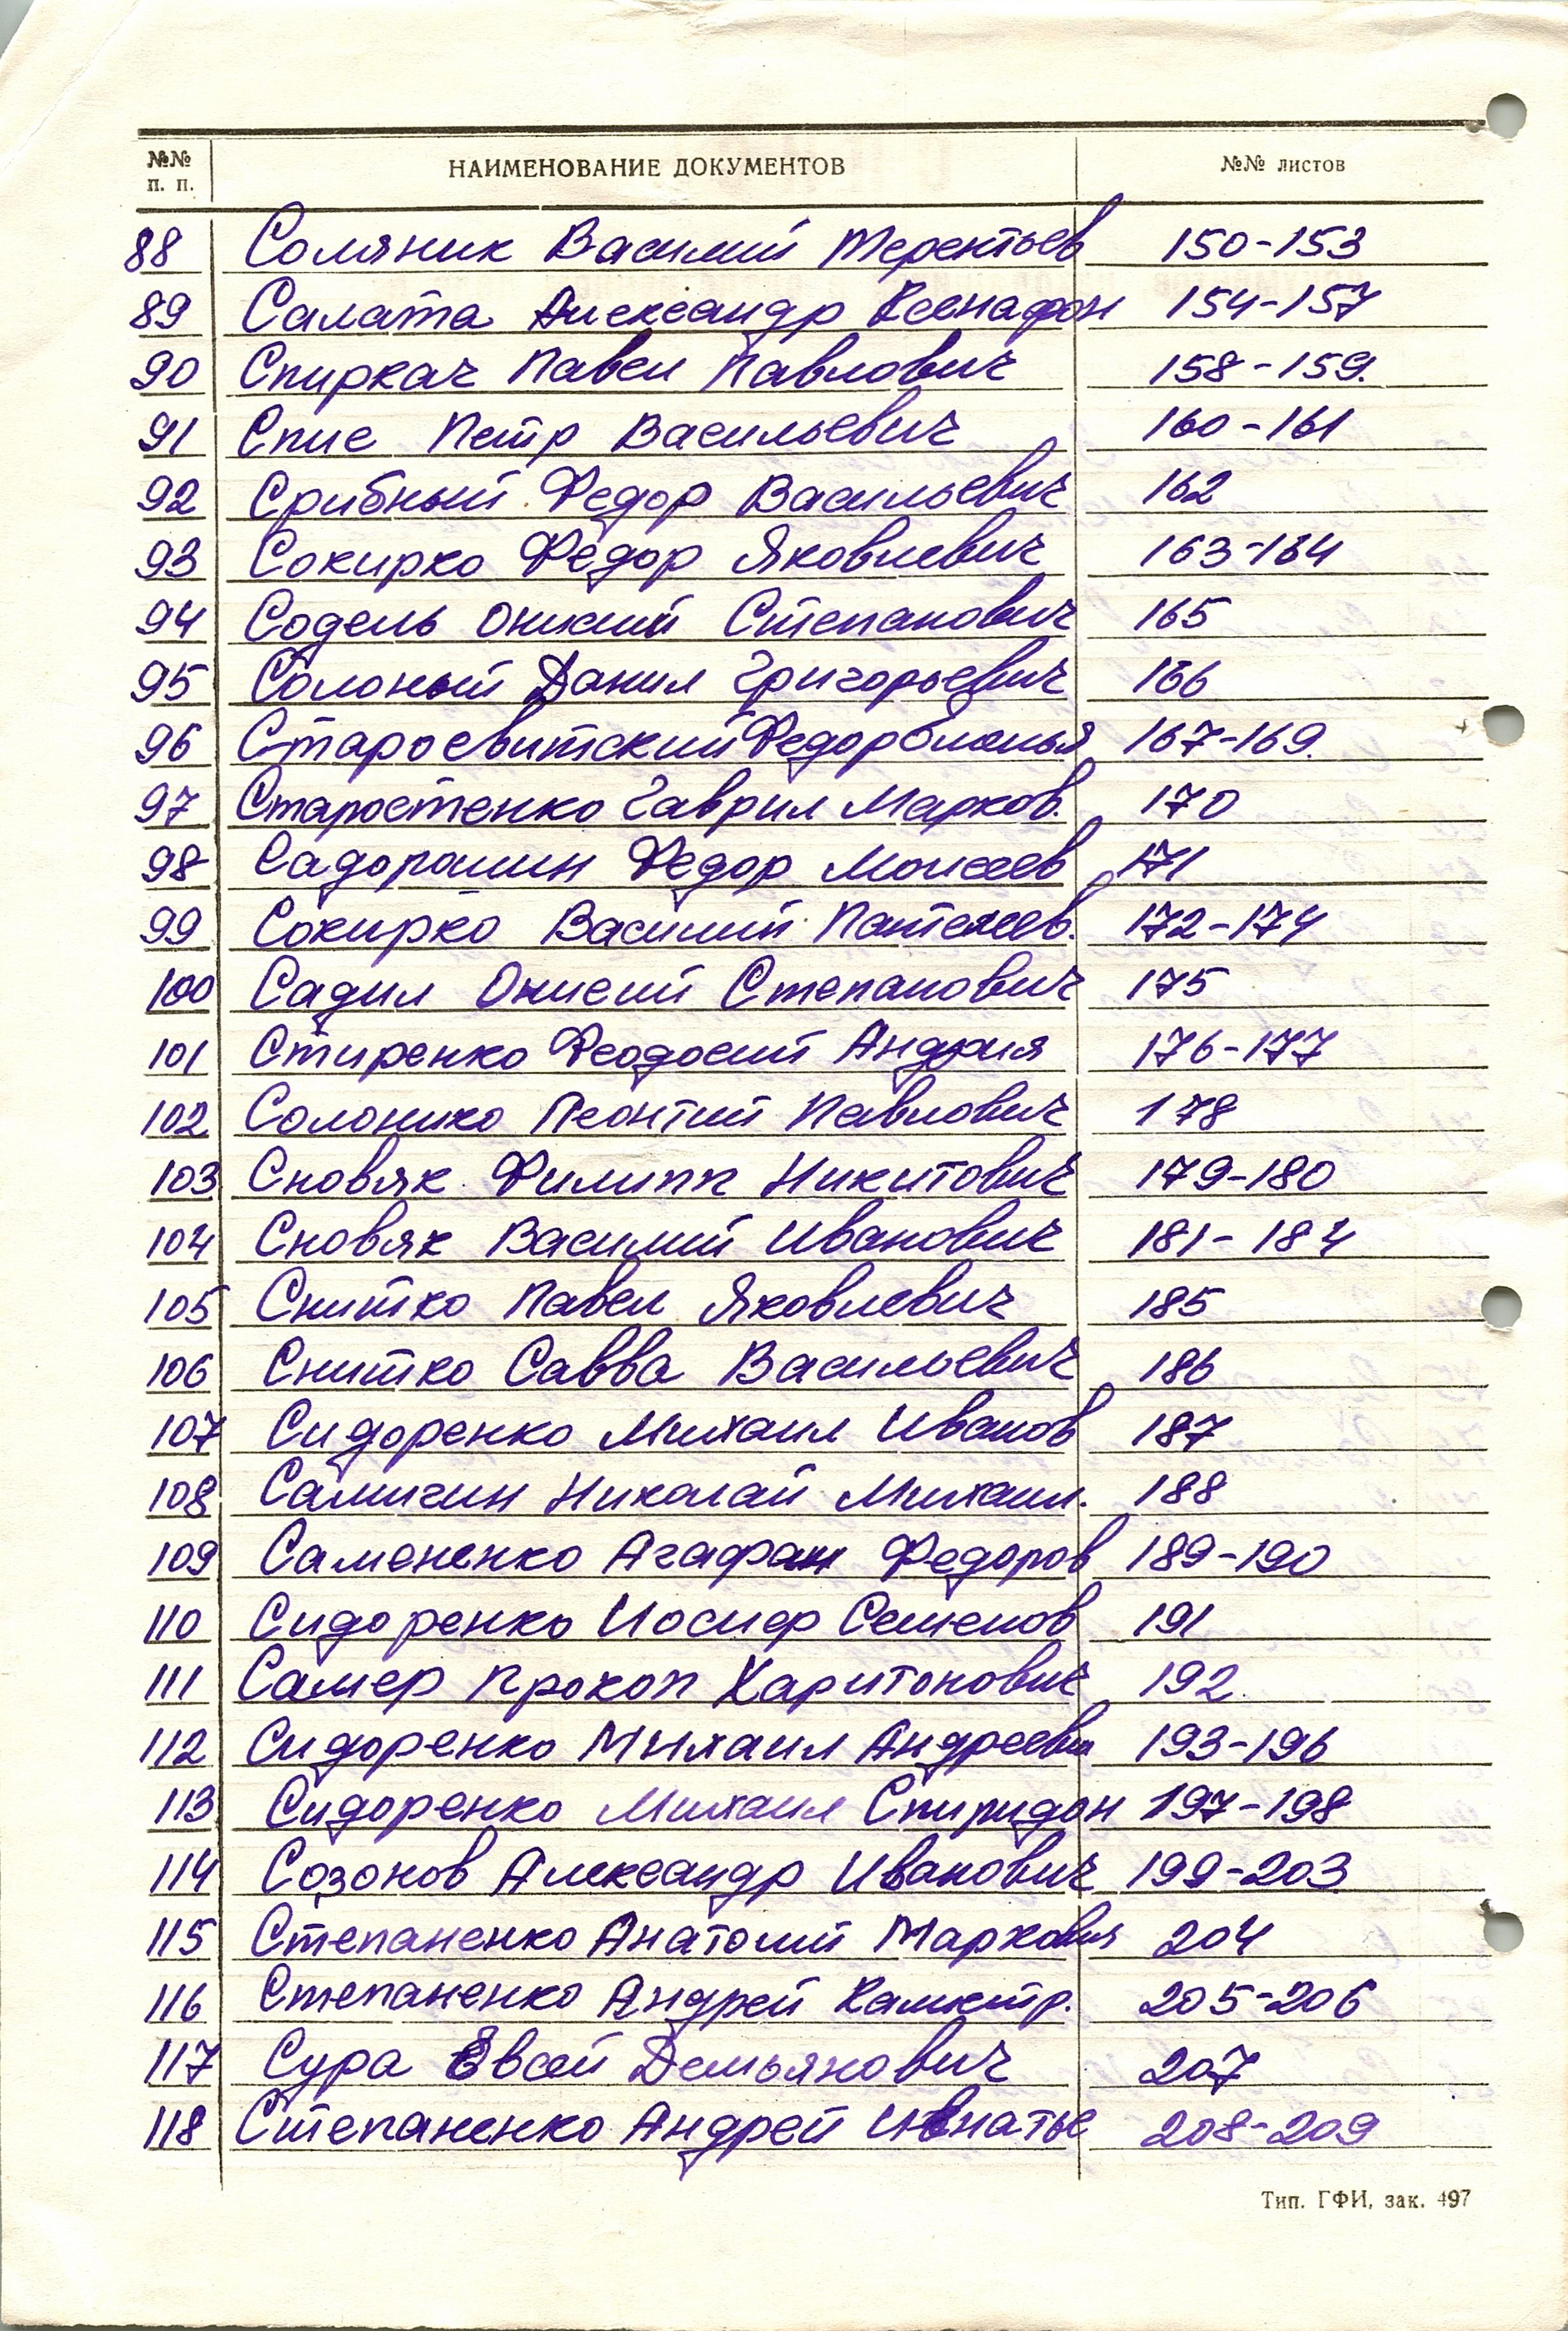 №№ п. п. НАИМЕНОВАНИЕ ДОКУМЕНТОВ №№ листов
88 Соляник Василий Терентьев 150-153
89 Салата Александр Ксенафон 154-157
90 Спиркач Павел Павлович 158-159.
91 Спис Петр Васильевич 160-161
92 Срибный Федор Васильевич 162
93 Сокирко Фёдор Яковлевич 163-164
94 Содель Онисий Степанович 165
95 Солоный Данил Григорьевич 166
96 Старосвитский Федор 167-169.
97 Старостенко Гаврил Марков. 170
98 Садорошин Федор Моисеев 171
99 Сокирко Василий Пантелеев. 172-174
100 Садил Онисий Степанович 175
101 Стиренко Феодосий Андрия 176-177
102 Солонико Леонтий Павлович 178
103 Сновяк Филипп Никитович 179-180
104 Сновяк Василий Иванович 181-184
105 Снитко Павел Яковлевич 185
106 Снитко Савва Васильевич 186
107 Сидоренко Михаил Иванов 187
108 Самигин Николай Михаил. 188
109 Самененко Агафан Федоров 189-190
110 Сидоренко Иосиф Семенов 191
111 Самер Прокоп Харитонович 192
112 Сидоренко Михаил Андреевич 193-196
113 Сидоренко Михаил Спиридон 197-198
114 Созонов Александр Иванович 199-203
115 Степаненко Анатолий Маркович 204
116 Степаненко Андрей Калистр. 205-206
117 Сура Евсей Демьянович 207
118 Степаненко Андрей 208-209
Тип. ГФИ, зак. 497